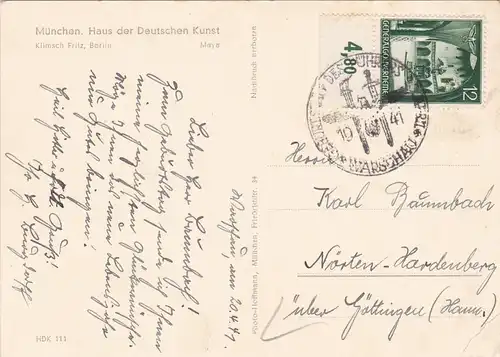 München. Haus der Deutschen Kunst
Klimsch Fritz, Berlin Maja
Warschau, am 20.4.41.
Lieber Herr Baumbach!
Zum Geburtstag sende ich Ihnen
meine herzlichsten Glückwünsche.
Möge Ihnen das neue Lebensjahr
nur Gutes bringen!
Heil Hitler u. Gruß!
Ihr
HDK 111
Photo-Hoffmann, München, Friedrichstr. 34
Nachdruck verboten
4,80
GENERALGOUVERNEMENT
12
WARSCHAU
41
Herrn
Karl Baumbach
Nörten-Hardenberg
über Göttingen (Hann.)